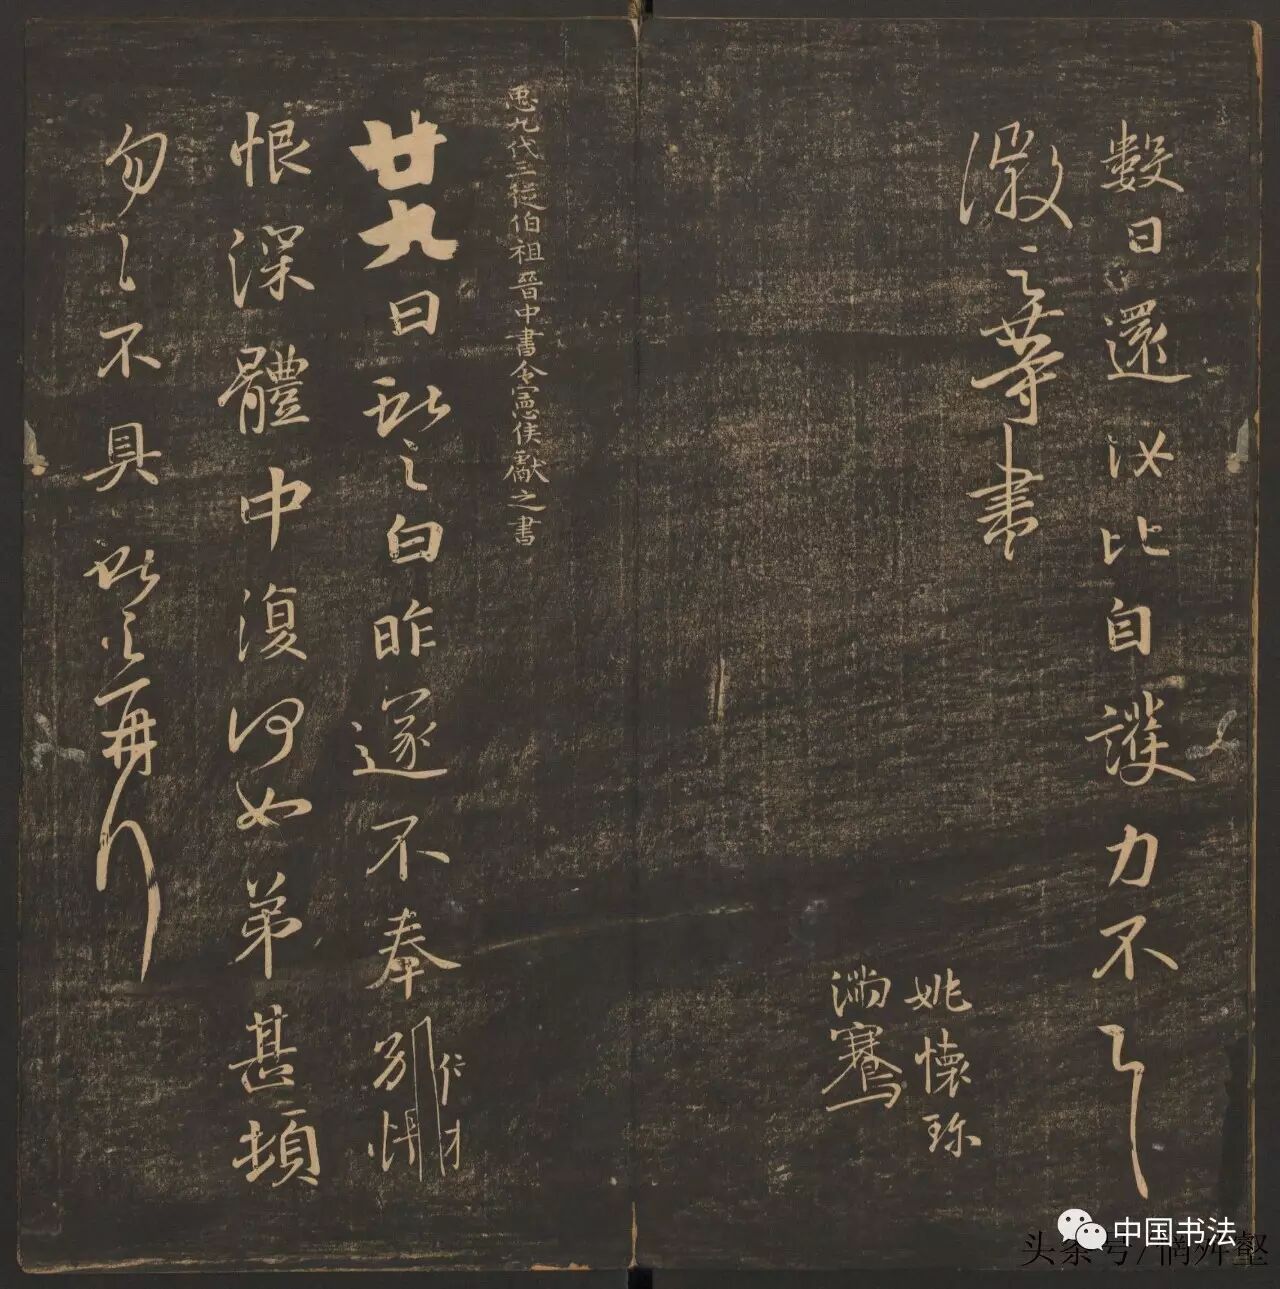 數日還汝比自護力不
徽之等書
姚懷珍
滿騫
𢘑九代三從伯祖晉中書令憲侯獻之書
廿九日獻之白昨遂不奉別悵
恨深體中復何如弟甚頓
勿勿不具獻之再拜
中国书法
头条号/